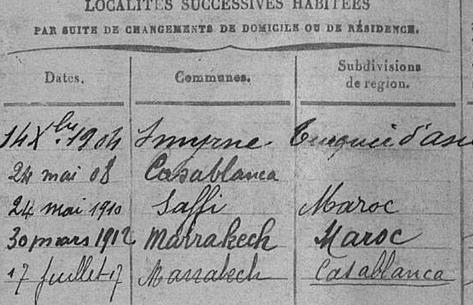 LOCALITÉS SUCCESSIVES HABITÉES
PAR SUITE DE CHANGEMENTS DE DOMICILE OU DE RÉSIDENCE.
Dates. Communes. Subdivisions de région.
14 Xbre 1904 Smyrne Turquie d'asie
24 mai 08 Casablanca
24 mai 1910 Saffi Maroc
30 mars 1912 Marrakech Maroc
17 juillet 17 Marrakech Casablanca